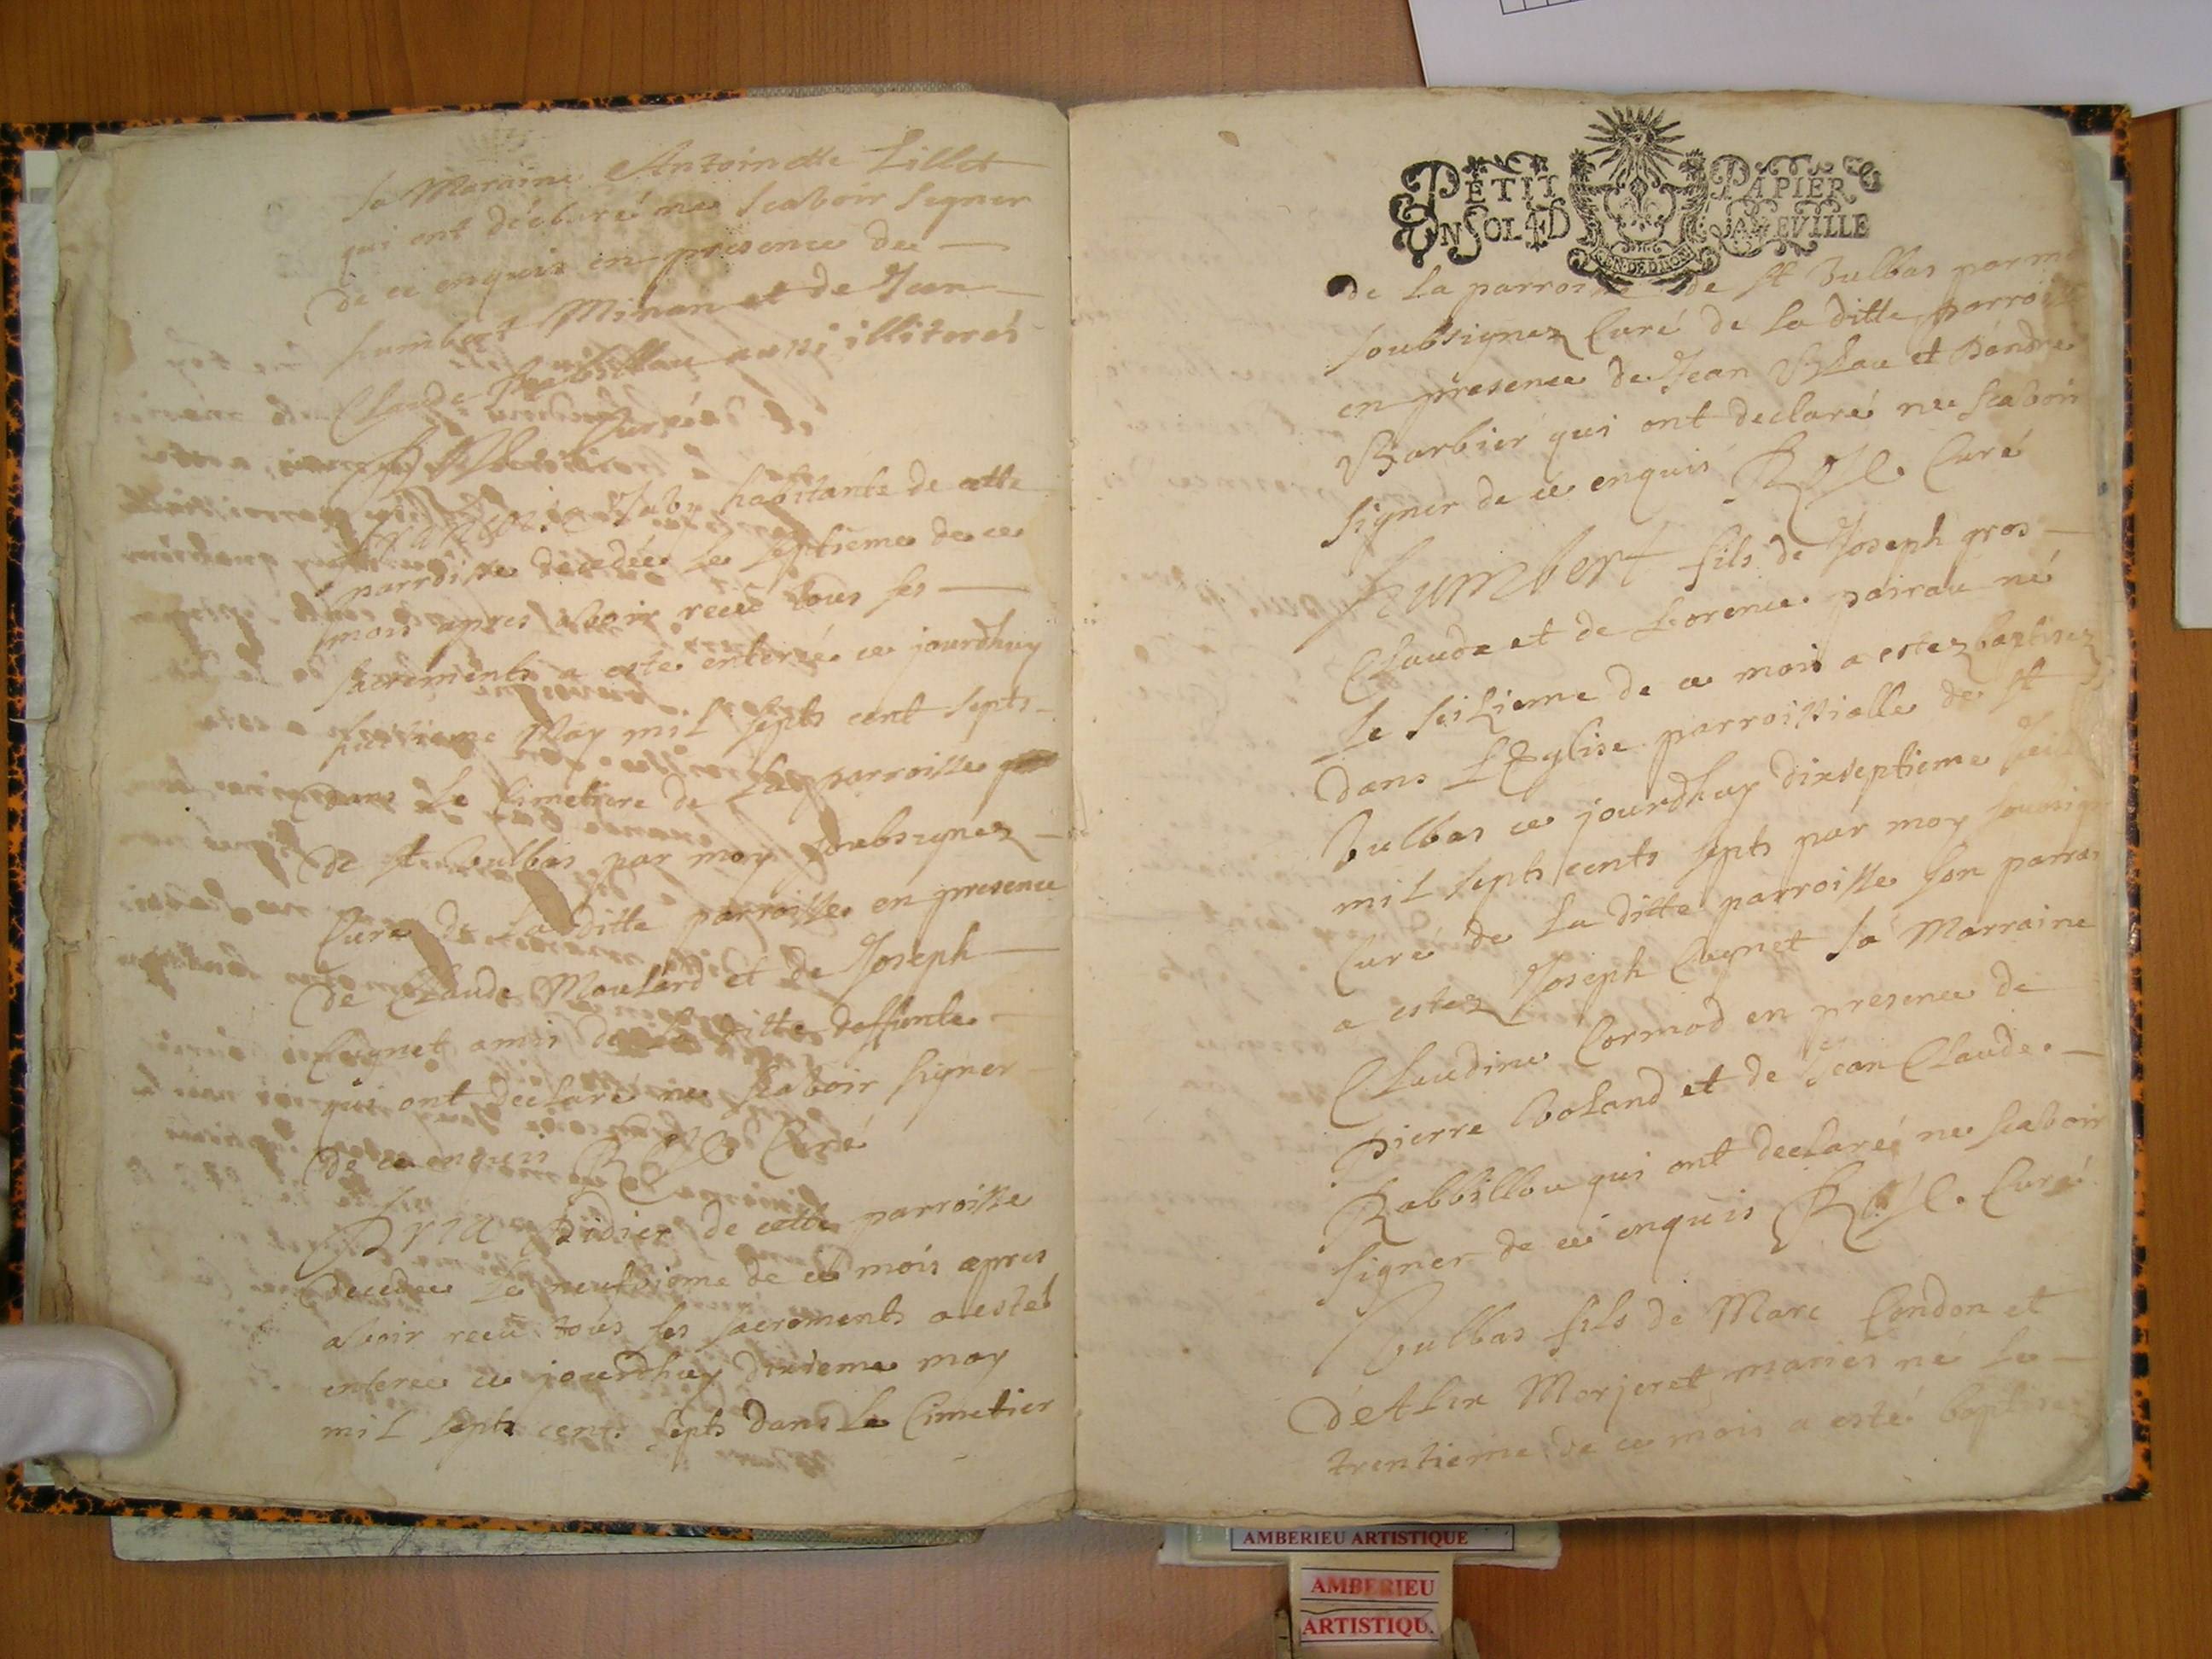 sa Maraine Antoinette Lillet
qui ont déclaré ne scavoir signer
de ce enquis en presence de
humbert Minan et de Jean
Claude Rabillou aussi illiterés
Rose Curé
habitante de cette
parroisse décedée le septieme de ce
mois apres avoir receu tous ses
sacrements a esté enterrée ce jourdhuy
huictieme May mil septs cent septs
dans le Cimetiere de La parroisse
de st Vulbas par moy soubsignez
Curé de La ditte parroisse en presence
de Claude Moulard et de Joseph
Cugnet amis de la ditte deffunte
qui ont declaré ne scavoir signer
de ce enquis Rose Curé
Didier de cette parroisse
decedee le neufvieme de ce mois apres
avoir receu tous ses sacrements a esté
enterée ce jourdhuy dixieme may
mil septs cents septs dans le Cimetier
PETIT PAPIER
UN SOL 4 D LA FEUILLE
de La parroisse de st Vulbas par m
soubsignez Curé de La ditte parroisse
en presence de Jean et
Barbier qui ont declaré ne scavoir
signer de ce enquis Rose Curé
humbert fils de Joseph gros
Claude et de Lorence poirau né
le seizieme de ce mois a estez baptisez
dans LEglise parroissialle de st
Vulbas ce jourdhuy dixseptieme
mil septs cents septs par moy soussigné
Curé de La ditte parroisse son parrain
a estez Joseph Cugnet sa Marraine
Claudine Cormod en presence de
Pierre Voland et de Jean Claude
Rabbillou qui ont declaré ne scavoir
signer de ce enquis Rose Curé
Vulbas fils de Marc Condon et
Morjeret mariés né le
trentieme de ce mois a esté baptisez
AMBERIEU ARTISTIQUE
AMBERIEU
ARTISTIQU.